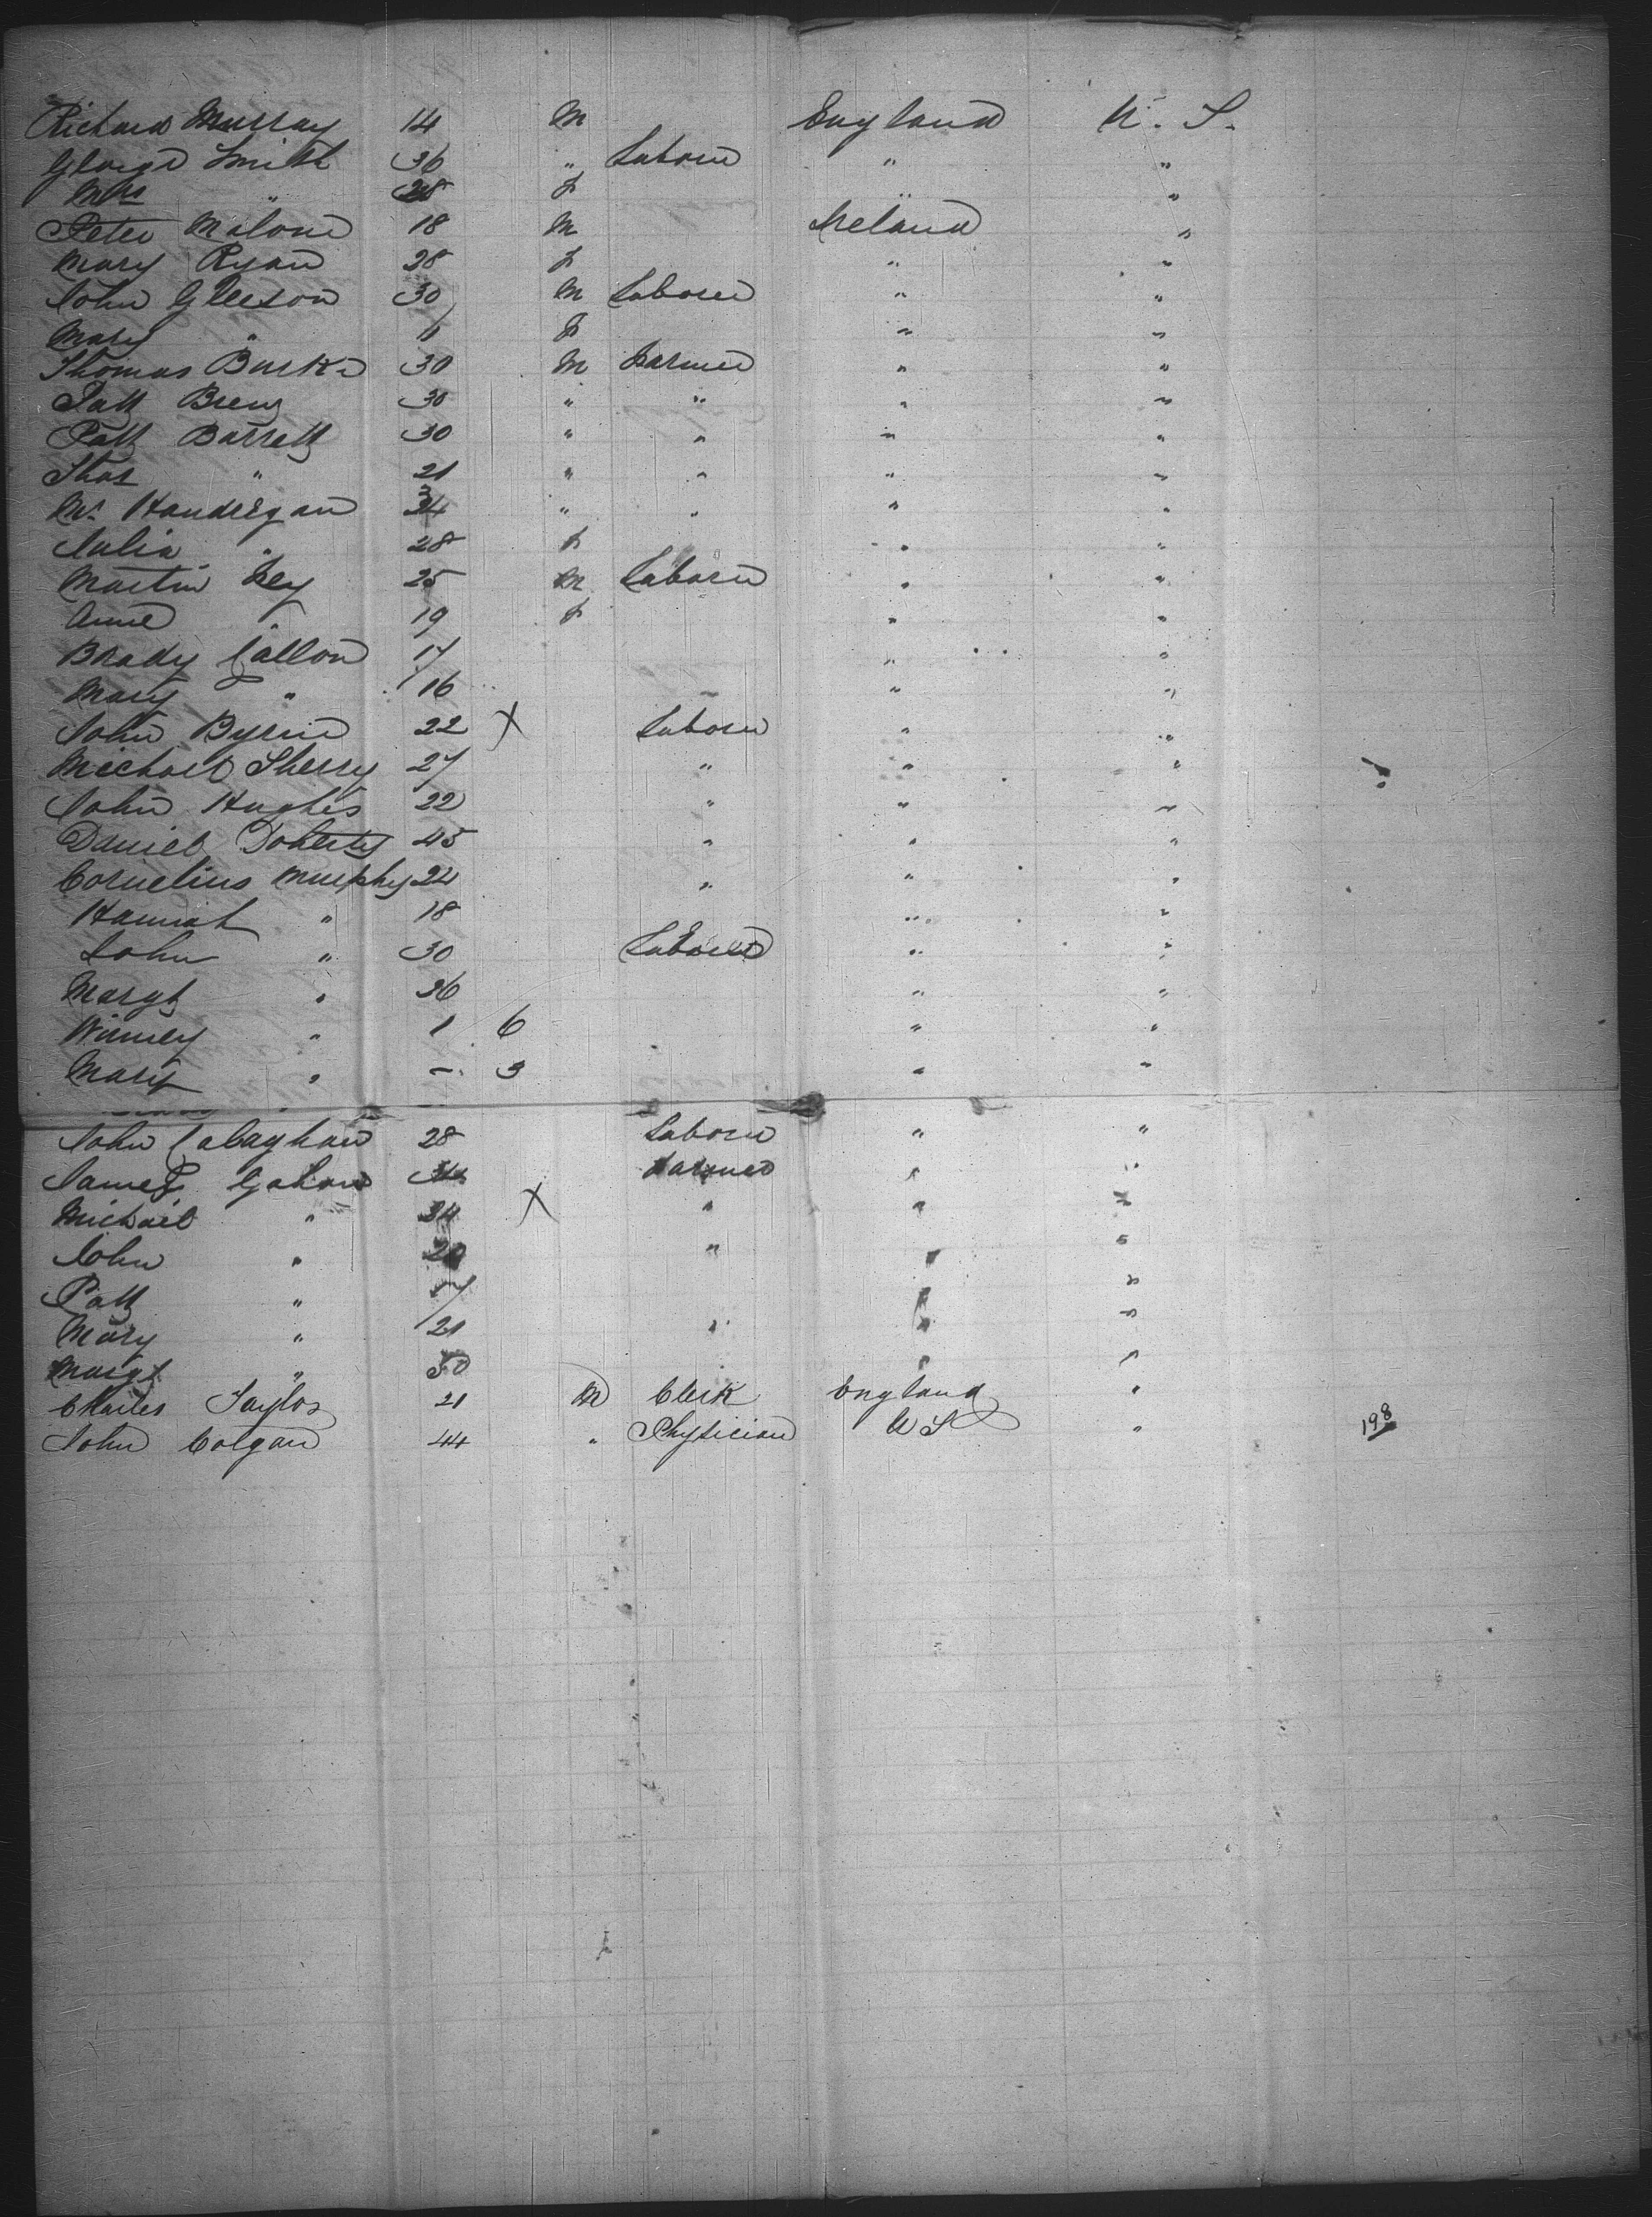 Richard Murray 14 M England U. S.
George Smith 36 " Laborer " "
Mrs " 28 F " "
Peter Malone 18 M Ireland "
Mary Ryan 28 F " "
John Gleeson 30 M Laborer " "
Mary " 11 F " "
Thomas Burke 30 M Farmer " "
Patt 30 " " " "
Patt Barrett 30 " " " "
Thos " 21 " " " "
Mr. Handregan 34 " " " "
Julia " 28 F " "
Martin Fey 25 M Laborer " "
Anne " 19 F " "
Brady Callon 17 " "
Mary " 16 " "
John Byrne 22 X Laborer " "
Michael Sherry 27 " " "
John Hughes 22 " " "
Daniel Doherty 45 " " "
Cornelius Murphy 24 " " "
Hannah " 18 " "
John " 30 Laborer " "
Margt " 36 " "
Winney " 1 6 " "
Mary " - 3 " "
John Calaghan 28 Laborer " "
James Gahan Farmer " "
Michael " 34 X " " "
John " 20 " " "
Patt " 17 " "
Mary " 21 " " "
Margt " 50 " "
Charles Taylor 21 M Clerk England "
John Colgan 44 " Physician U S "
198